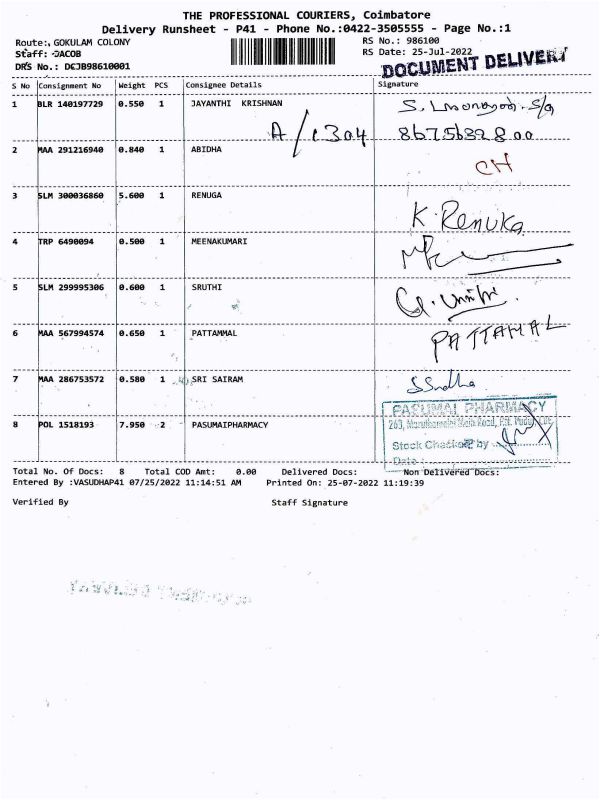 THE PROFESSIONAL COURIERS, Coimbatore
Delivery Runsheet - P41 - Phone No.:0422-3505555 - Page No.:1
Route: GOKULAM COLONY
Staff: JACOB
DRS No.: DCJB98610001
RS No.: 986100
RS Date: 25-Jul-2022
DOCUMENT DELIVERY
S No Consignment No Weight PCS Consignee Details Signature
1 BLR 140197729 0.550 1 JAYANTHI KRISHNAN
A/1304 8675632800
2 MAA 291216940 0.840 1 ABIDHA CH
3 SLM 300036860 5.600 1 RENUGA K. Renuka
4 TRP 6490094 0.500 1 MEENAKUMARI
5 SLM 299995306 0.600 1 SRUTHI
6 MAA 567994574 0.650 1 PATTAMMAL PATTAMAL
7 MAA 286753572 0.580 1 SRI SAIRAM SSudha
PASUMAI PHARMACY
263, Maruthamalai Main Road,
8 POL 1518193 7.950 2 PASUMAIPHARMACY
Stock Checked by
Date :
Total No. Of Docs: 8 Total COD Amt: 0.00 Delivered Docs: Non Delivered Docs:
Entered By :VASUDHAP41 07/25/2022 11:14:51 AM Printed On: 25-07-2022 11:19:39
Verified By Staff Signature